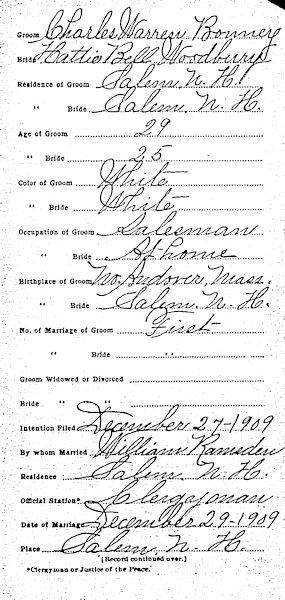 Groom Charles Warren Bonney
Bride Hattie Bell Woodbury
Residence of Groom Salem N. H.
" Bride Salem N. H.
Age of Groom 29
" Bride 25
Color of Groom White
" Bride White
Occupation of Groom Salesman
" Bride At home
Birthplace of Groom No. Andover, Mass.
" Bride Salem N. H.
No. of Marriage of Groom First
" " Bride " "
Groom Widowed or Divorced
Bride " "
Intention Filed December 27-1909
By whom Married William Ramsden
Residence Salem N. H.
Official Station* Clergyman
Date of Marriage December 29-1909
Place Salem N. H.
[Record continued over.]
*Clergyman or Justice of the Peace.